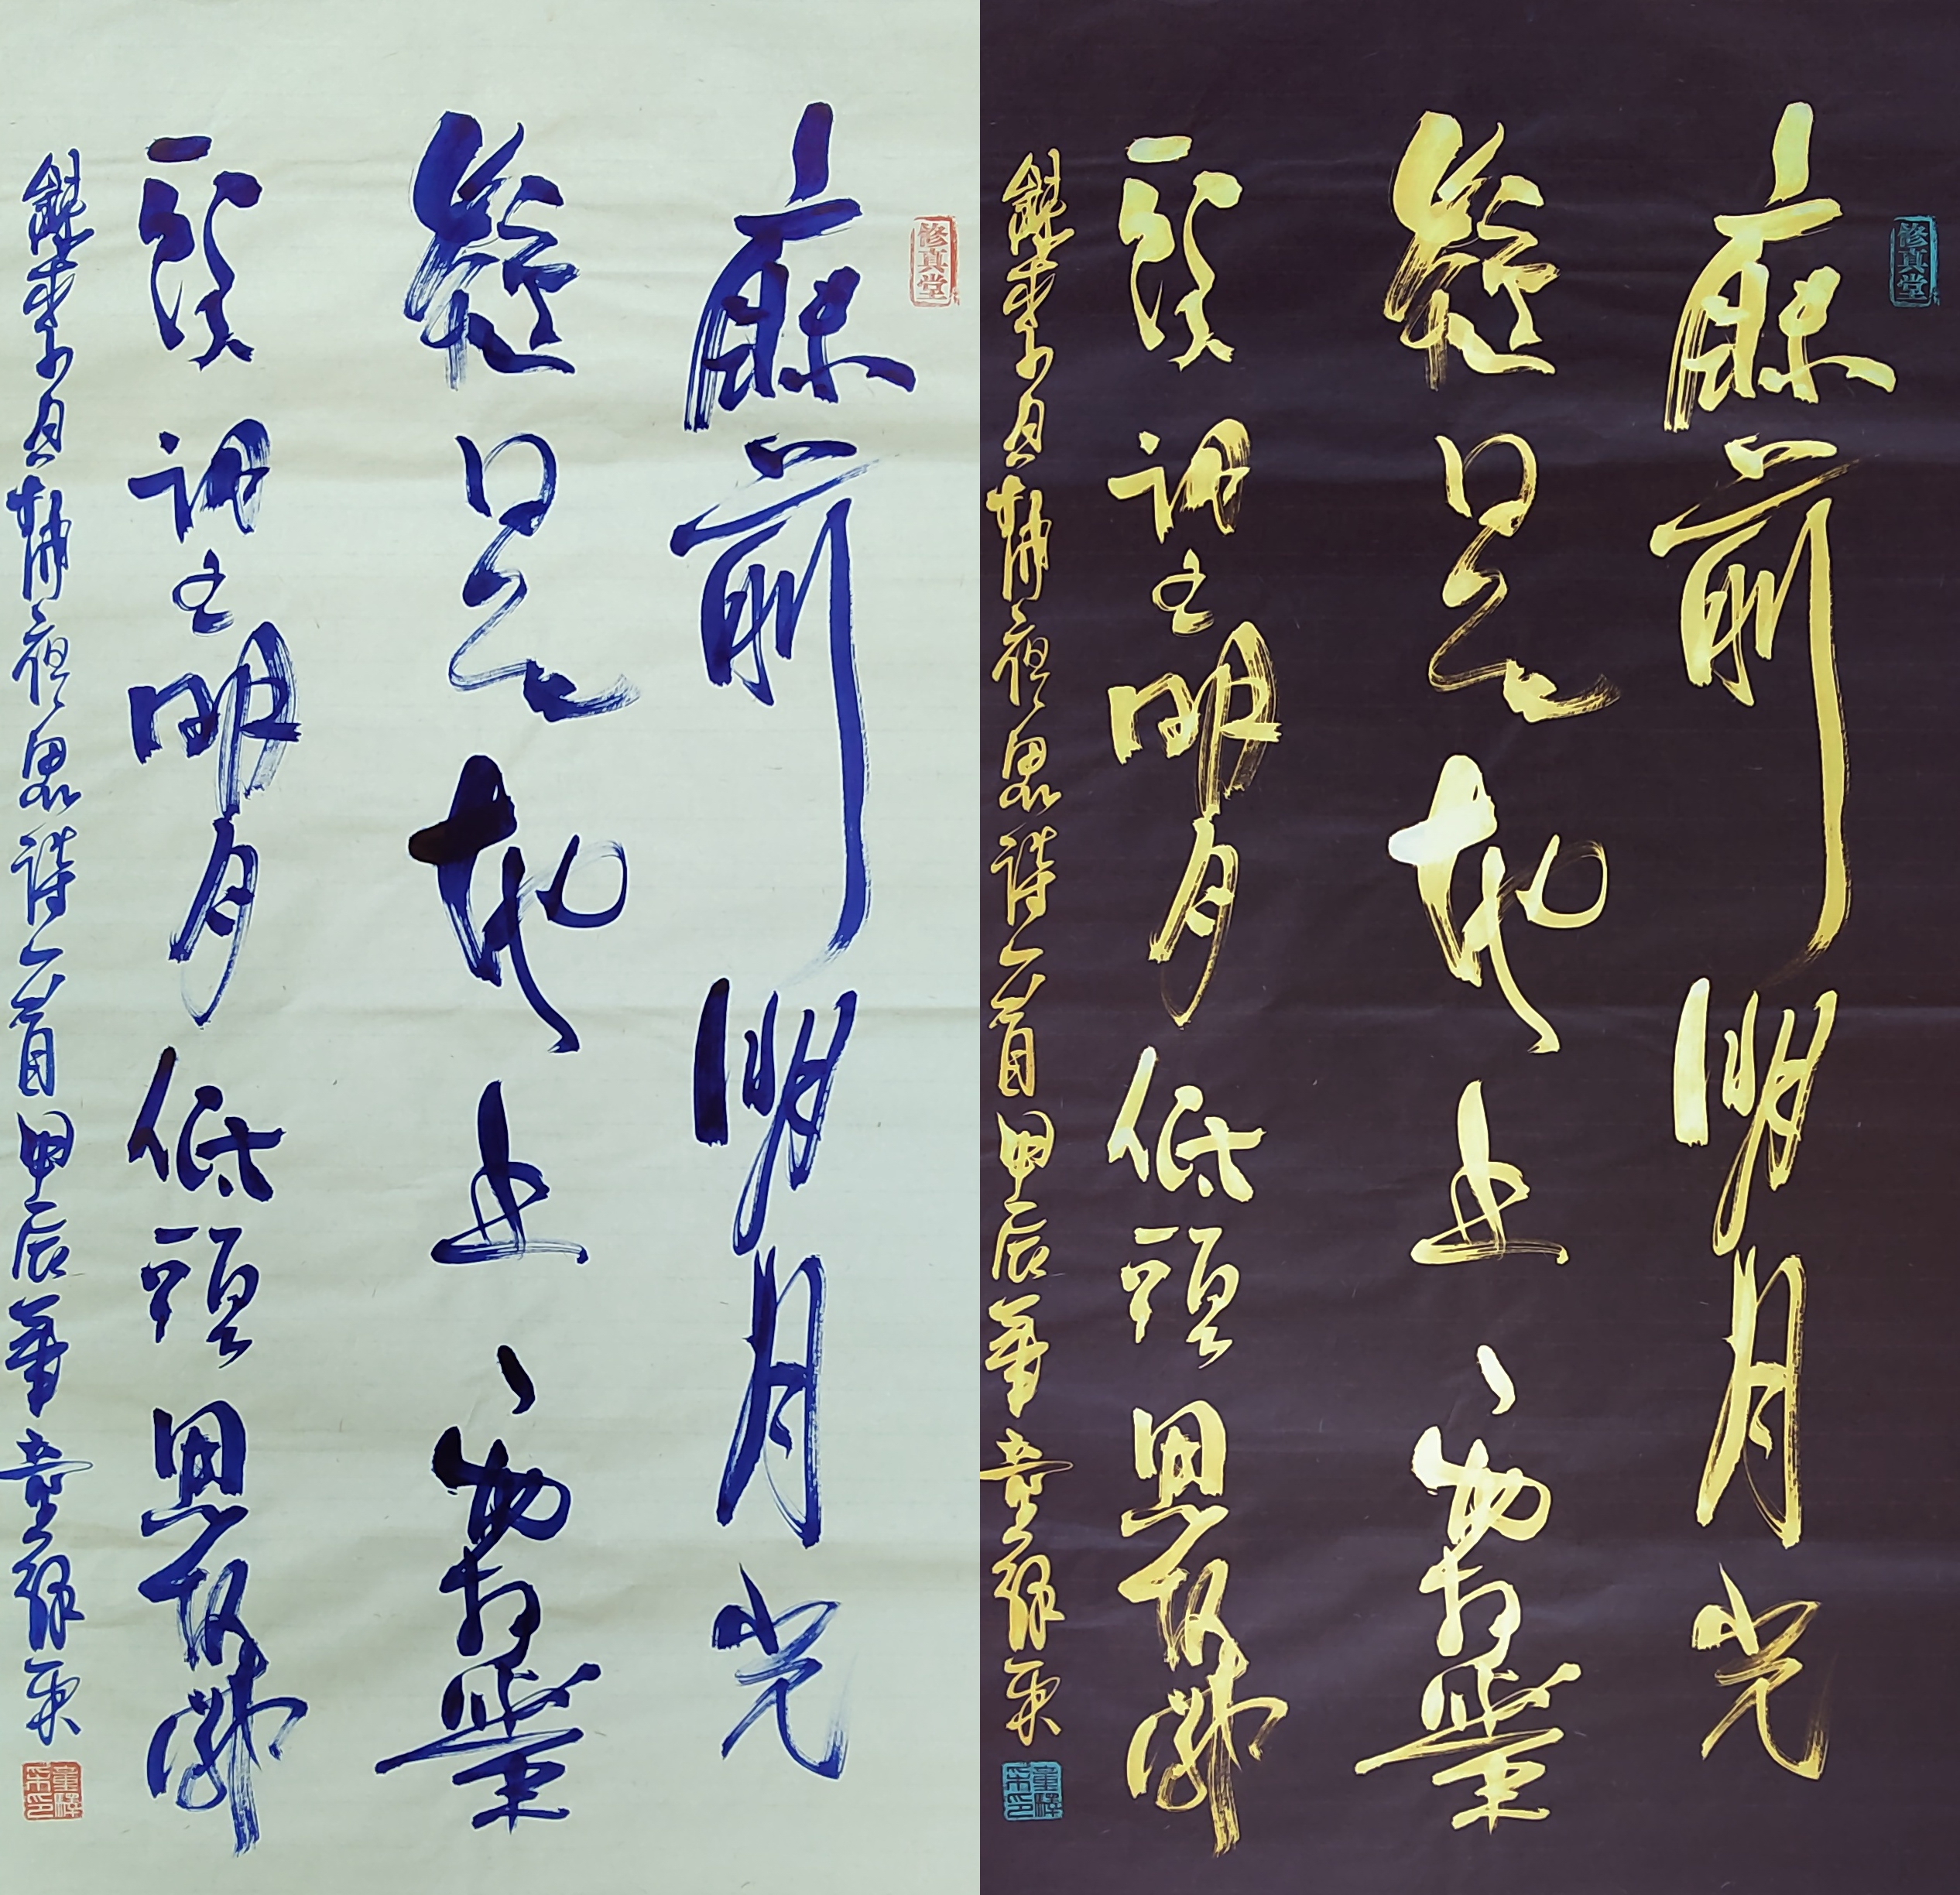 修真堂
床前明月光
疑是地上霜舉
頭望明月低頭思故鄉
錄李白靜夜思詩一首甲辰 童
修真堂
床前明月光
疑是地上霜舉
頭望明月低頭思故鄉
錄李白靜夜思詩一首甲辰 童